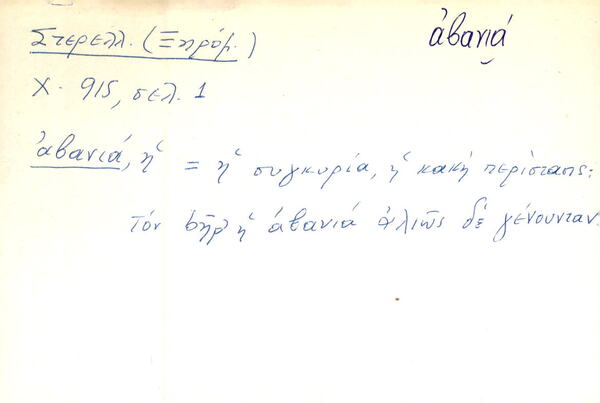 Στερελλ. (Ξηρόμ.)
ἀβανιά
Χ. 915, σελ. 1
ἀβανιά, ἡ = ἡ συγκυρία, ἡ κακή περίστασις:
Τόν βῆρ ἡ ἀβανιά ἀλιῶς δέ γένουνταν